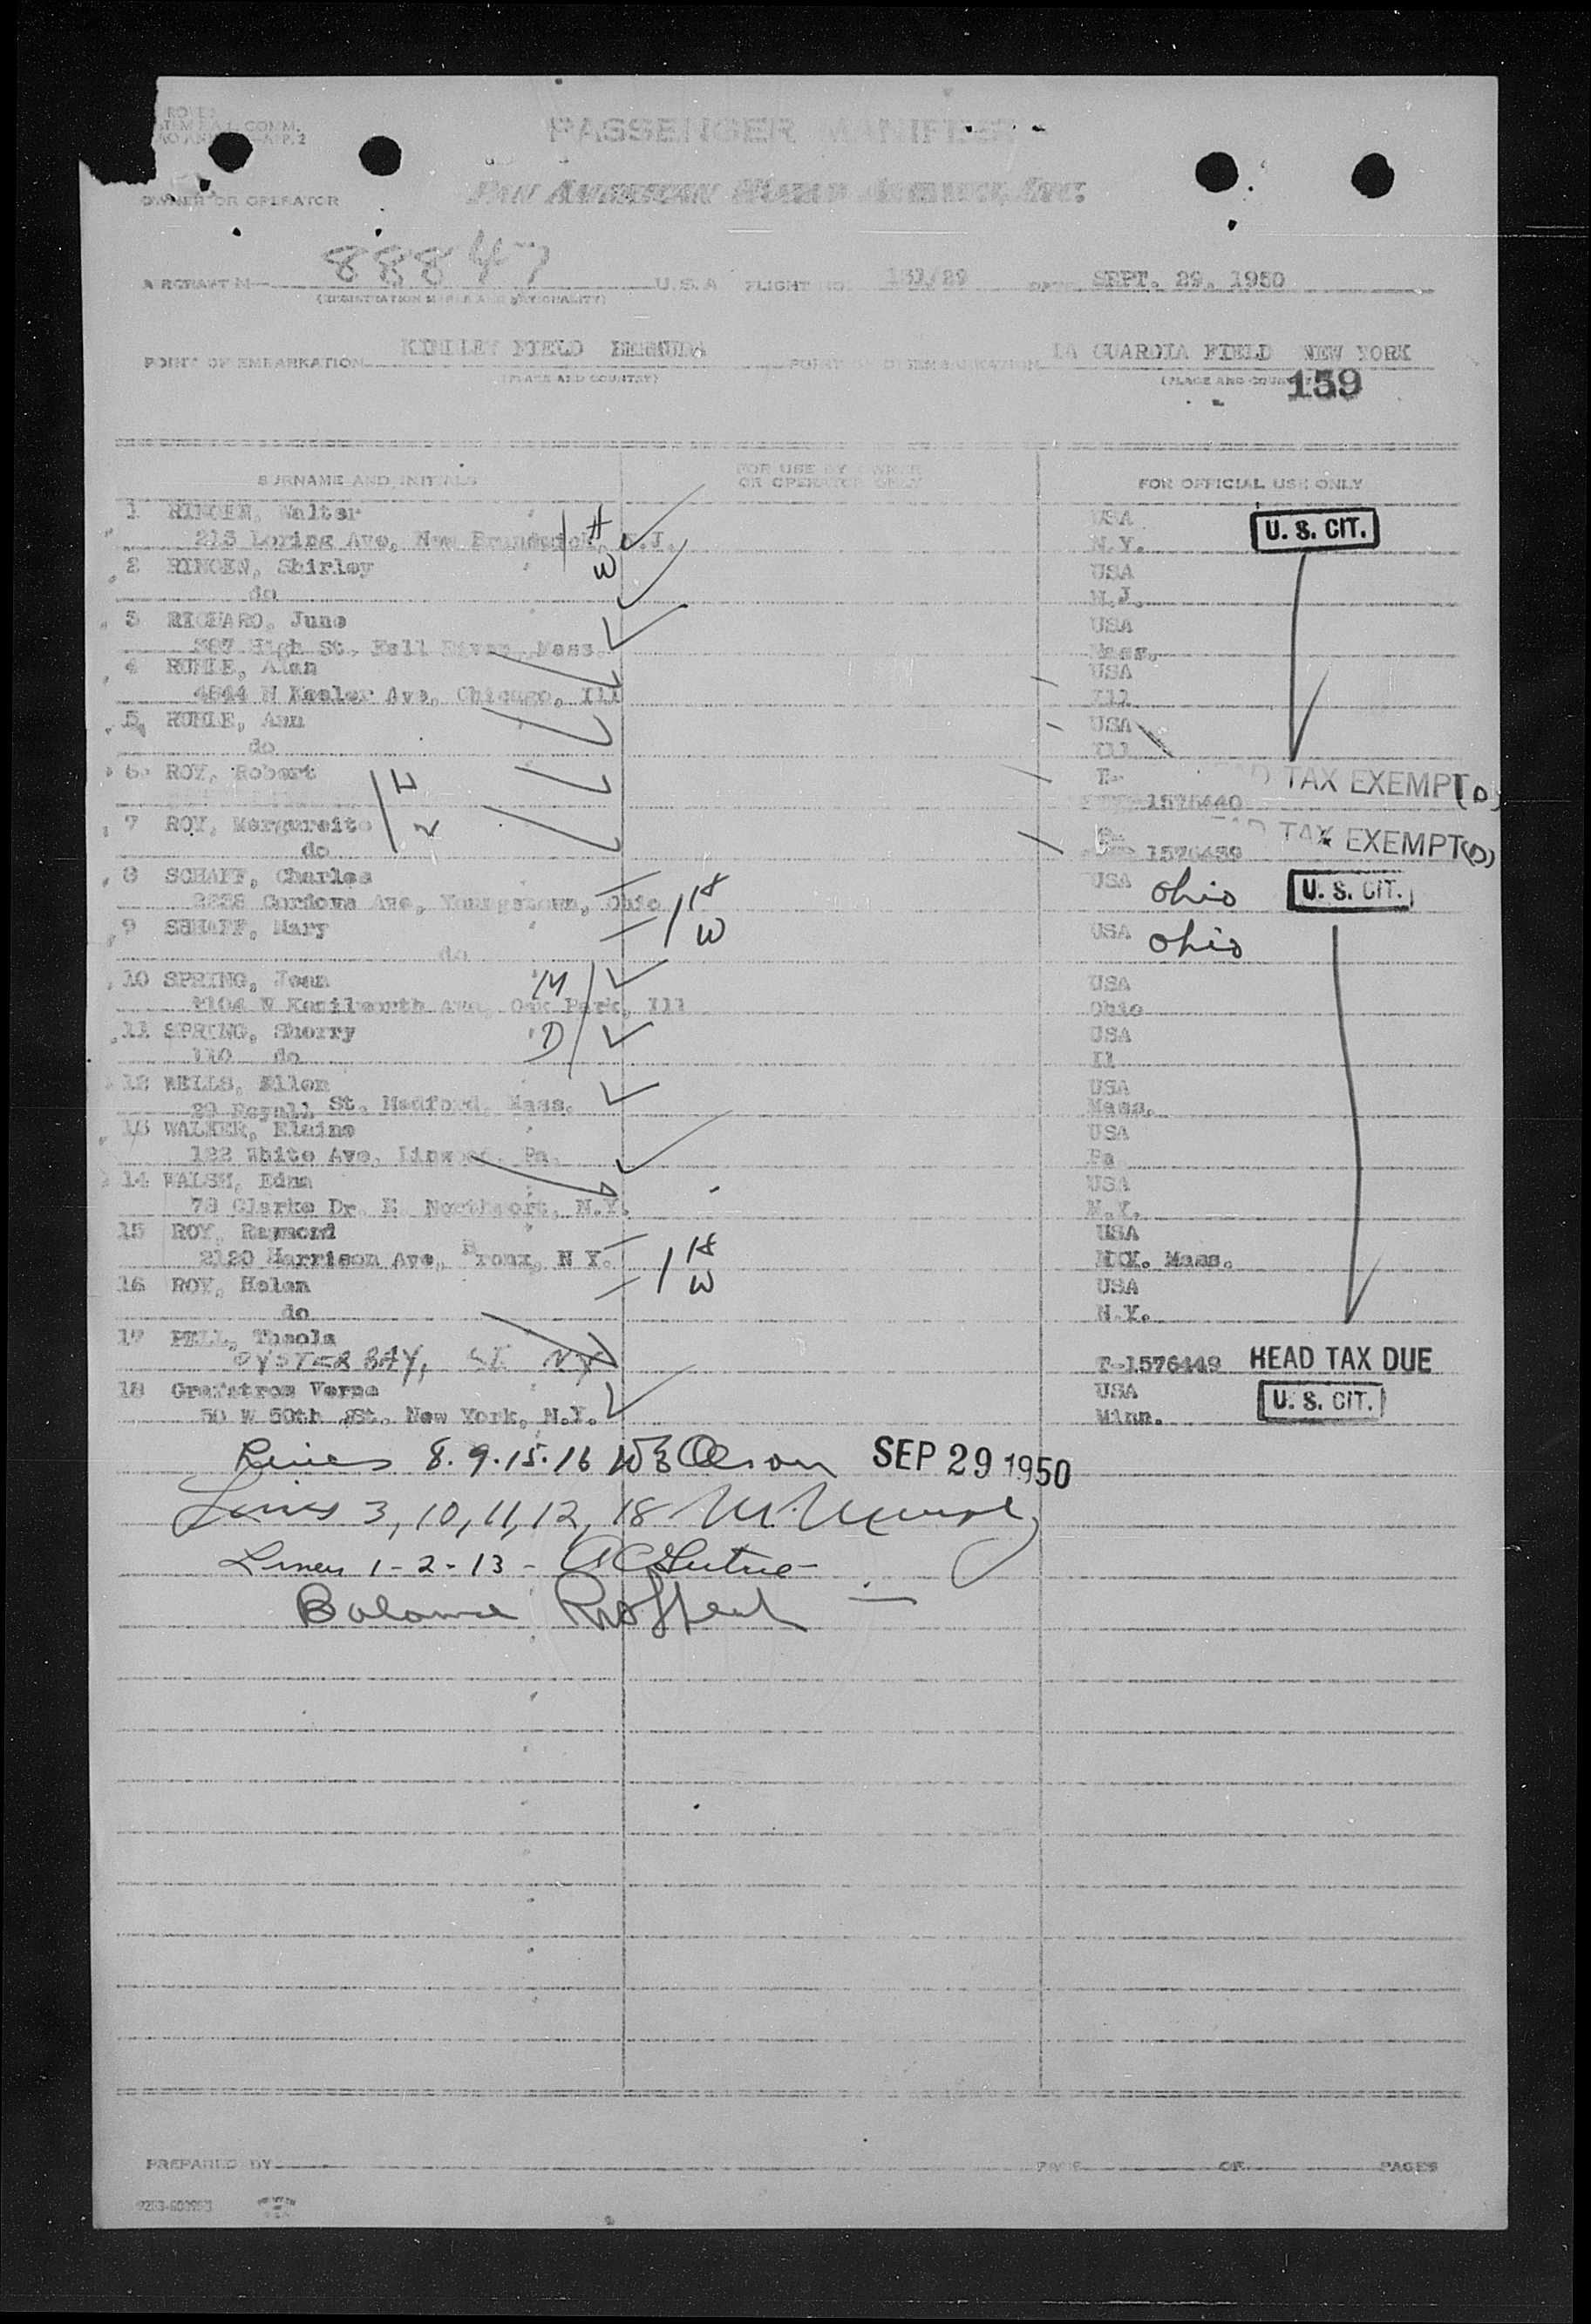 PASSENGER MANIFEST
PAN AMERICAN WORLD AIRWAYS, INC.
OWNER OR OPERATOR
AIRCRAFT N 88847 U.S.A FLIGHT NO. 131/29 DATE SEPT. 29, 1950
(REGISTRATION MARKS AND NATIONALITY)
POINT OF EMBARKATION KINDLEY FIELD BERMUDA POINT OF DISEMBARKATION LA GUARDIA FIELD NEW YORK
(PLACE AND COUNTRY) (PLACE AND COUNTRY)
159
SURNAME AND INITIALS FOR USE BY OWNER OR OPERATOR ONLY FOR OFFICIAL USE ONLY
1 Walter USA U. S. CIT.
215 Loring Ave, New Brunswick, N.J. H N.Y.
2 Shirley W USA
do N.J.
3 June USA
High St. Fall River, Mass Mass.
4 RUHLE, Alan USA
4844 N Keeler Ave, Chicago, Ill Ill
5 RUHLE, Ann USA
do Ill
6 ROY, Robert H T- HEAD TAX EXEMPT (D)
1576440
7 ROY, Marguerite W HEAD TAX EXEMPT (D)
do 1576439
8 SCHAFF, Charles USA Ohio U. S. CIT.
Cordova Ave, Youngstown, Ohio H
9 SCHAFF, Mary W USA Ohio
do
10 SPRING, Jean M USA
1104 N Kenilworth Ave, Oak Park, Ill Ohio
11 SPRING, Sherry D USA
110 do Il
12 WELLS, Ellen USA
29 Royall St. Medford, Mass. Mass.
13 WALKER, Elaine USA
122 White Ave, Linwood, Pa. Pa
14 WALSH, Edna USA
78 Clarke Dr. E. Northport, N.Y. N.Y.
15 ROY, Raymond USA
2120 Harrison Ave, Bronx, N Y. H Mass.
16 ROY, Helen W USA
do N.Y.
17 PELL, Theola
OYSTER BAY, LI NY T-1576443 HEAD TAX DUE
18 Grafstrom Verne USA U. S. CIT.
50 W 50th St. New York, N.Y. Minn.
Lines 8. 9. 15. 16 WE Olson SEP 29 1950
Lines 3, 10, 11, 12, 18
Lines 1-2-13-
Balance
PREPARED BY PAGE OF PAGES